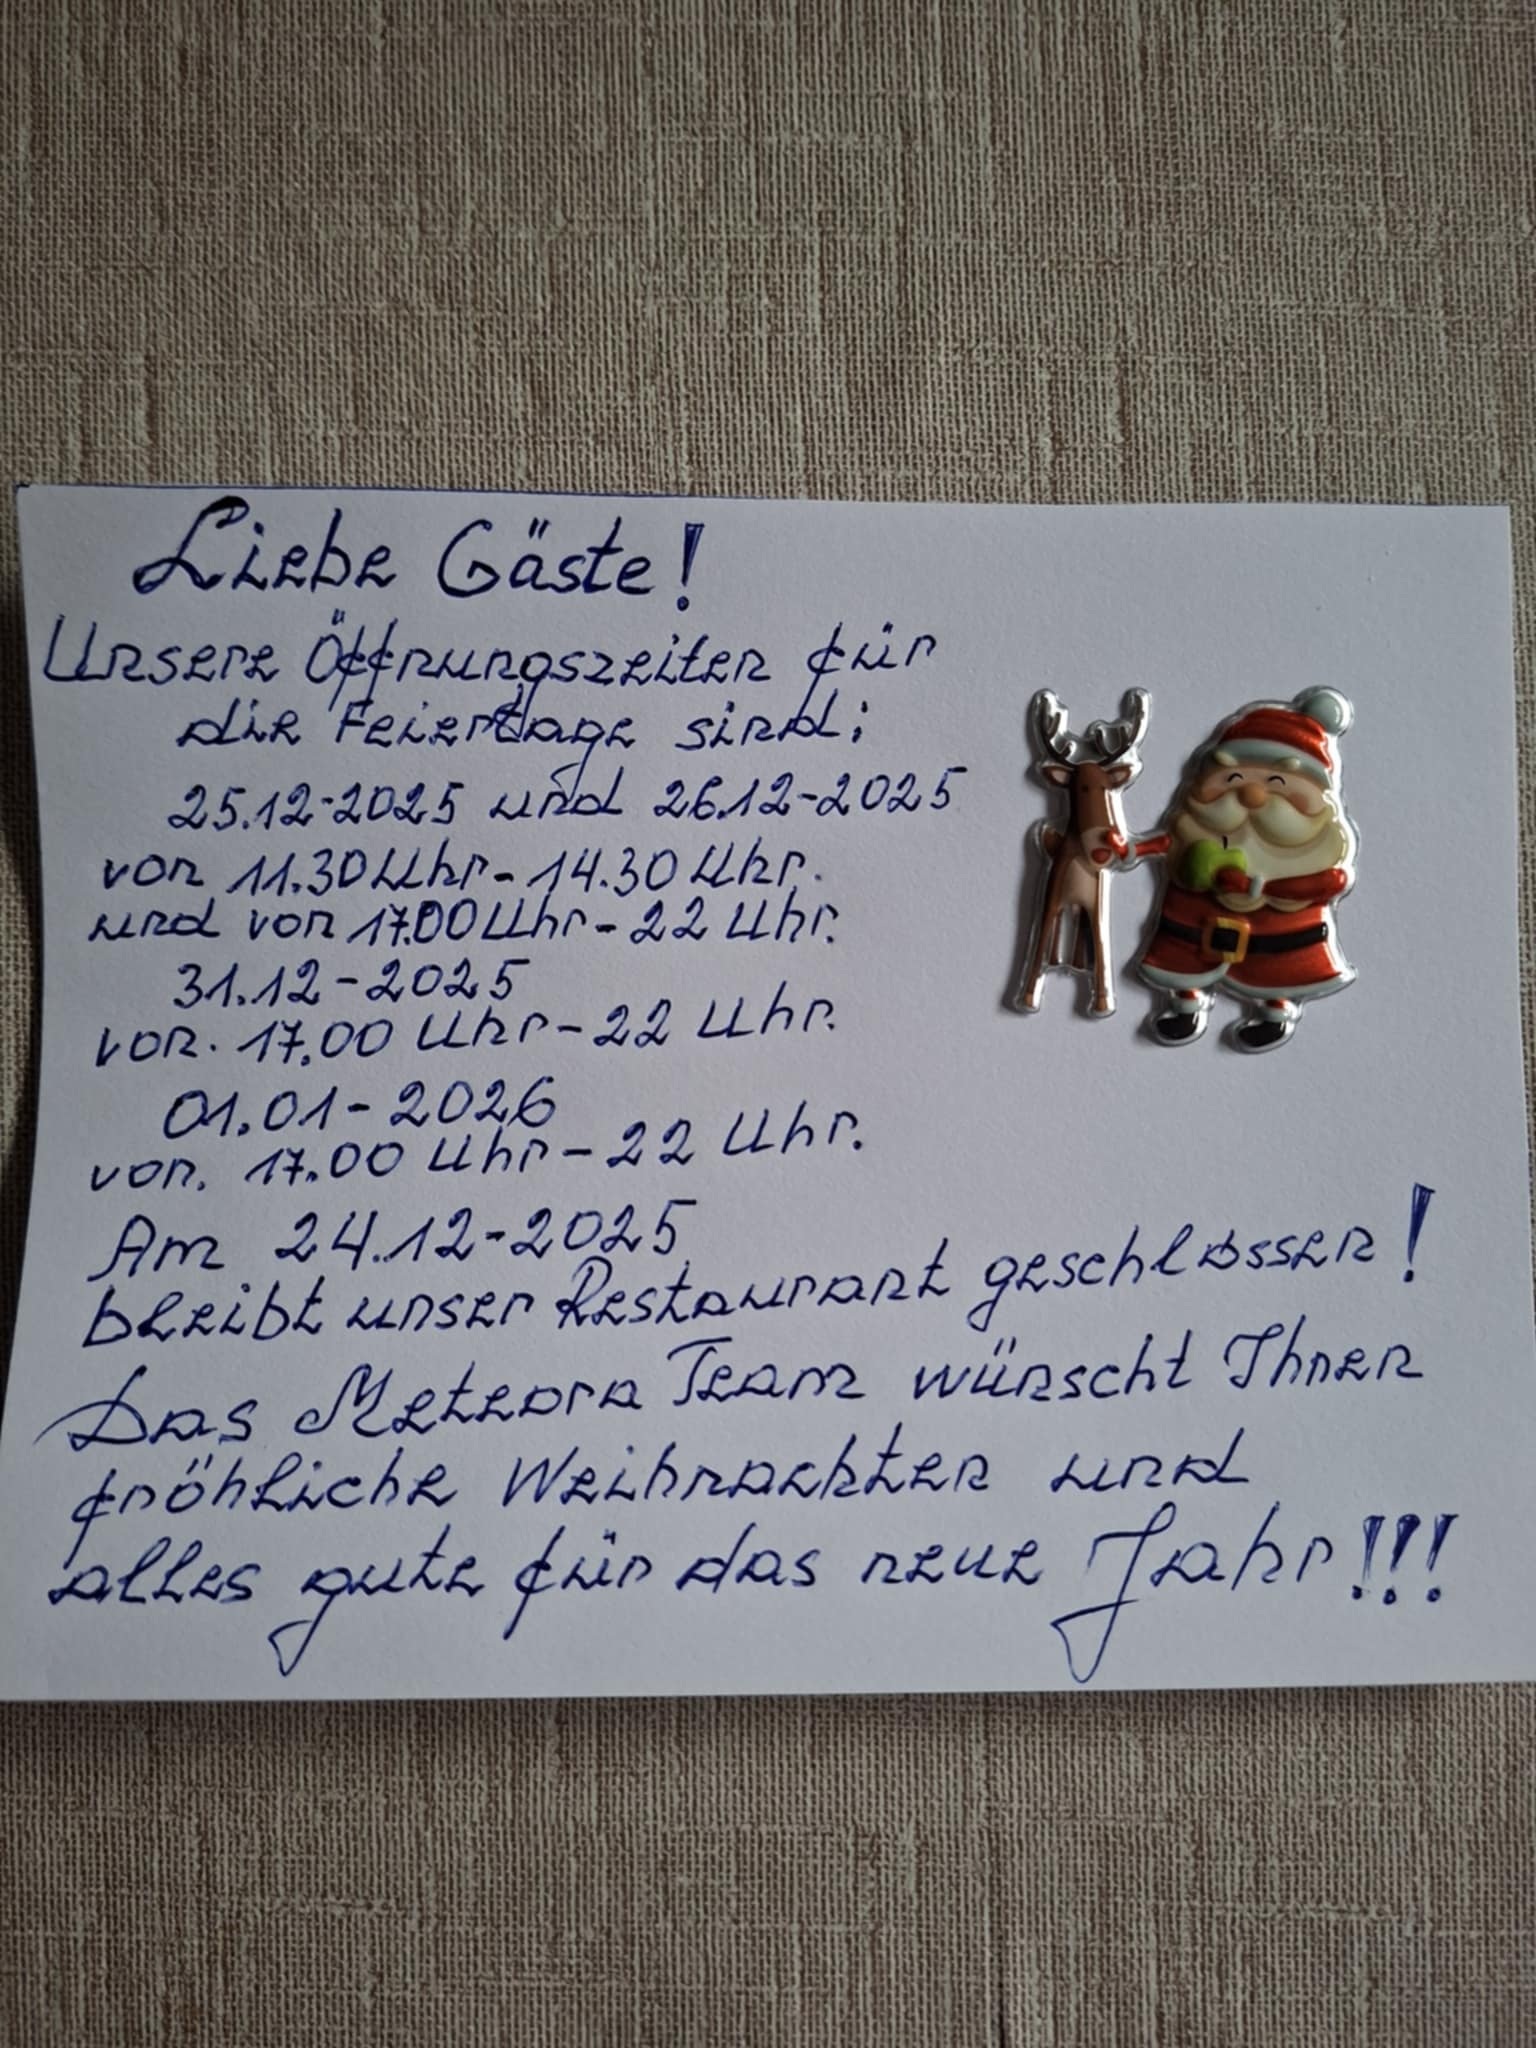 Liebe Gäste!
Unsere Öffnungszeiten für
die Feiertage sind:
25.12-2025 und 26.12-2025
von 11.30 Uhr - 14.30 Uhr.
und von 17.00 Uhr - 22 Uhr.
31.12-2025
von. 17.00 Uhr - 22 Uhr.
01.01-2026
von. 17.00 Uhr - 22 Uhr.
Am 24.12-2025
bleibt unser Restaurant geschlossen!
Das Meteora Team wünscht Ihnen
fröhliche Weihnachten und
alles gute für das neue Jahr!!!